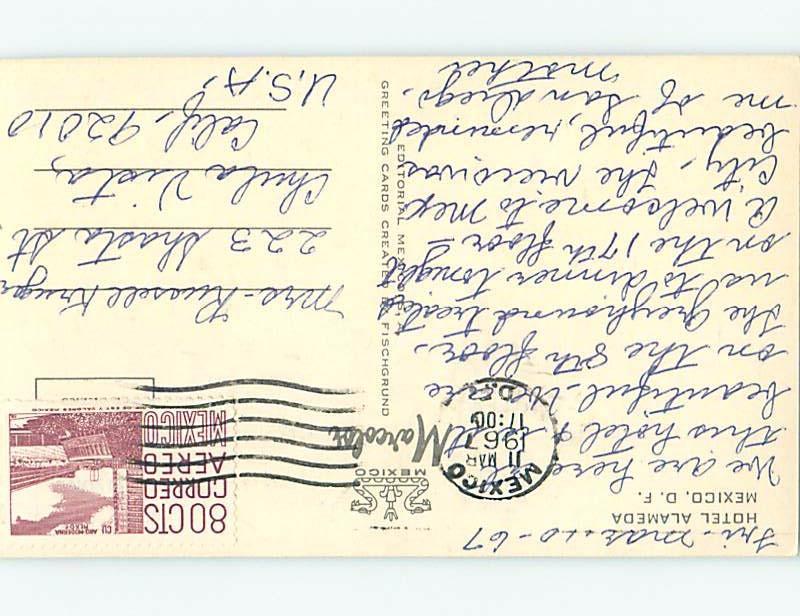 HOTEL ALAMEDA
MEXICO, D. F.
Fri - Mar. 10 - 67
We are here at
this hotel &
beautiful. We're
on the 8th floor.
The Greyhound treated
us to dinner tonight
on the 17th floor -
A welcome to Mex
City. The view was
beautiful, reminded
me of San Diego.
Mother
EDITORIAL MEXICO
GREETING CARDS CREATED BY FISCHGRUND
Marcolor
MEXICO
MEXICO
11 MAR
1967
17:00
D.F.
80 CTS
CORREO
AEREO
MEXICO
ARQ. MODERNA
MEX D F
CU
Mrs. Russell Kruger
223 Shasta St
Chula Vista,
Calif. 92010
U.S.A.